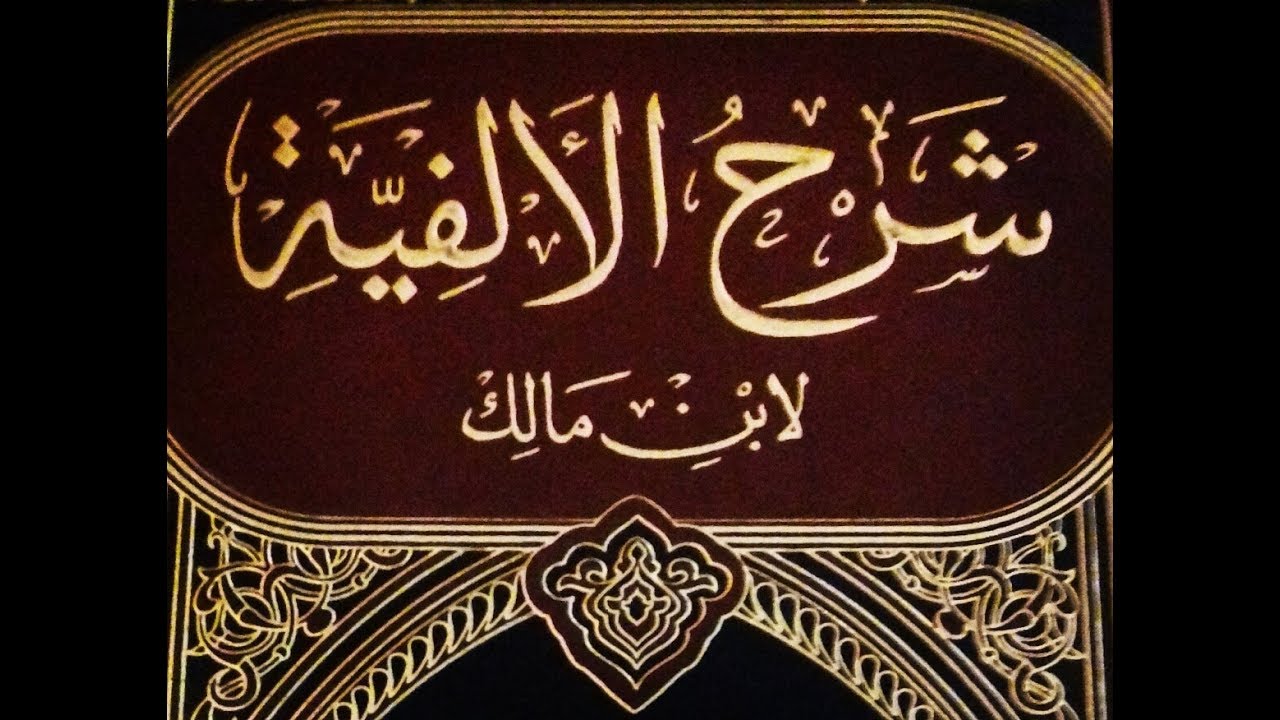 شَرْحُ الأَلفِيَّةِ
لابْنِ مَالِكْ